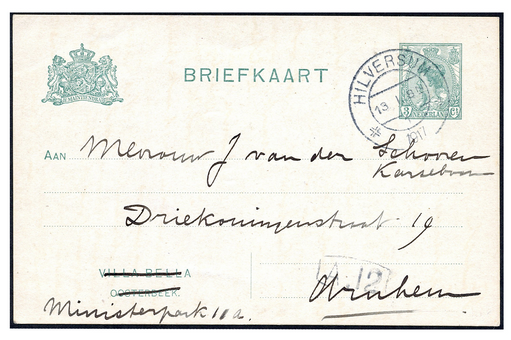 BRIEFKAART
HILVERSUM
13
1917
AAN Mevrouw J van der Schooren
Karseboom
Driekoningenstraat 19
VILLA BELLA
OOSTERBEEK.
A.12
Arnhem
Ministerpark 11a.